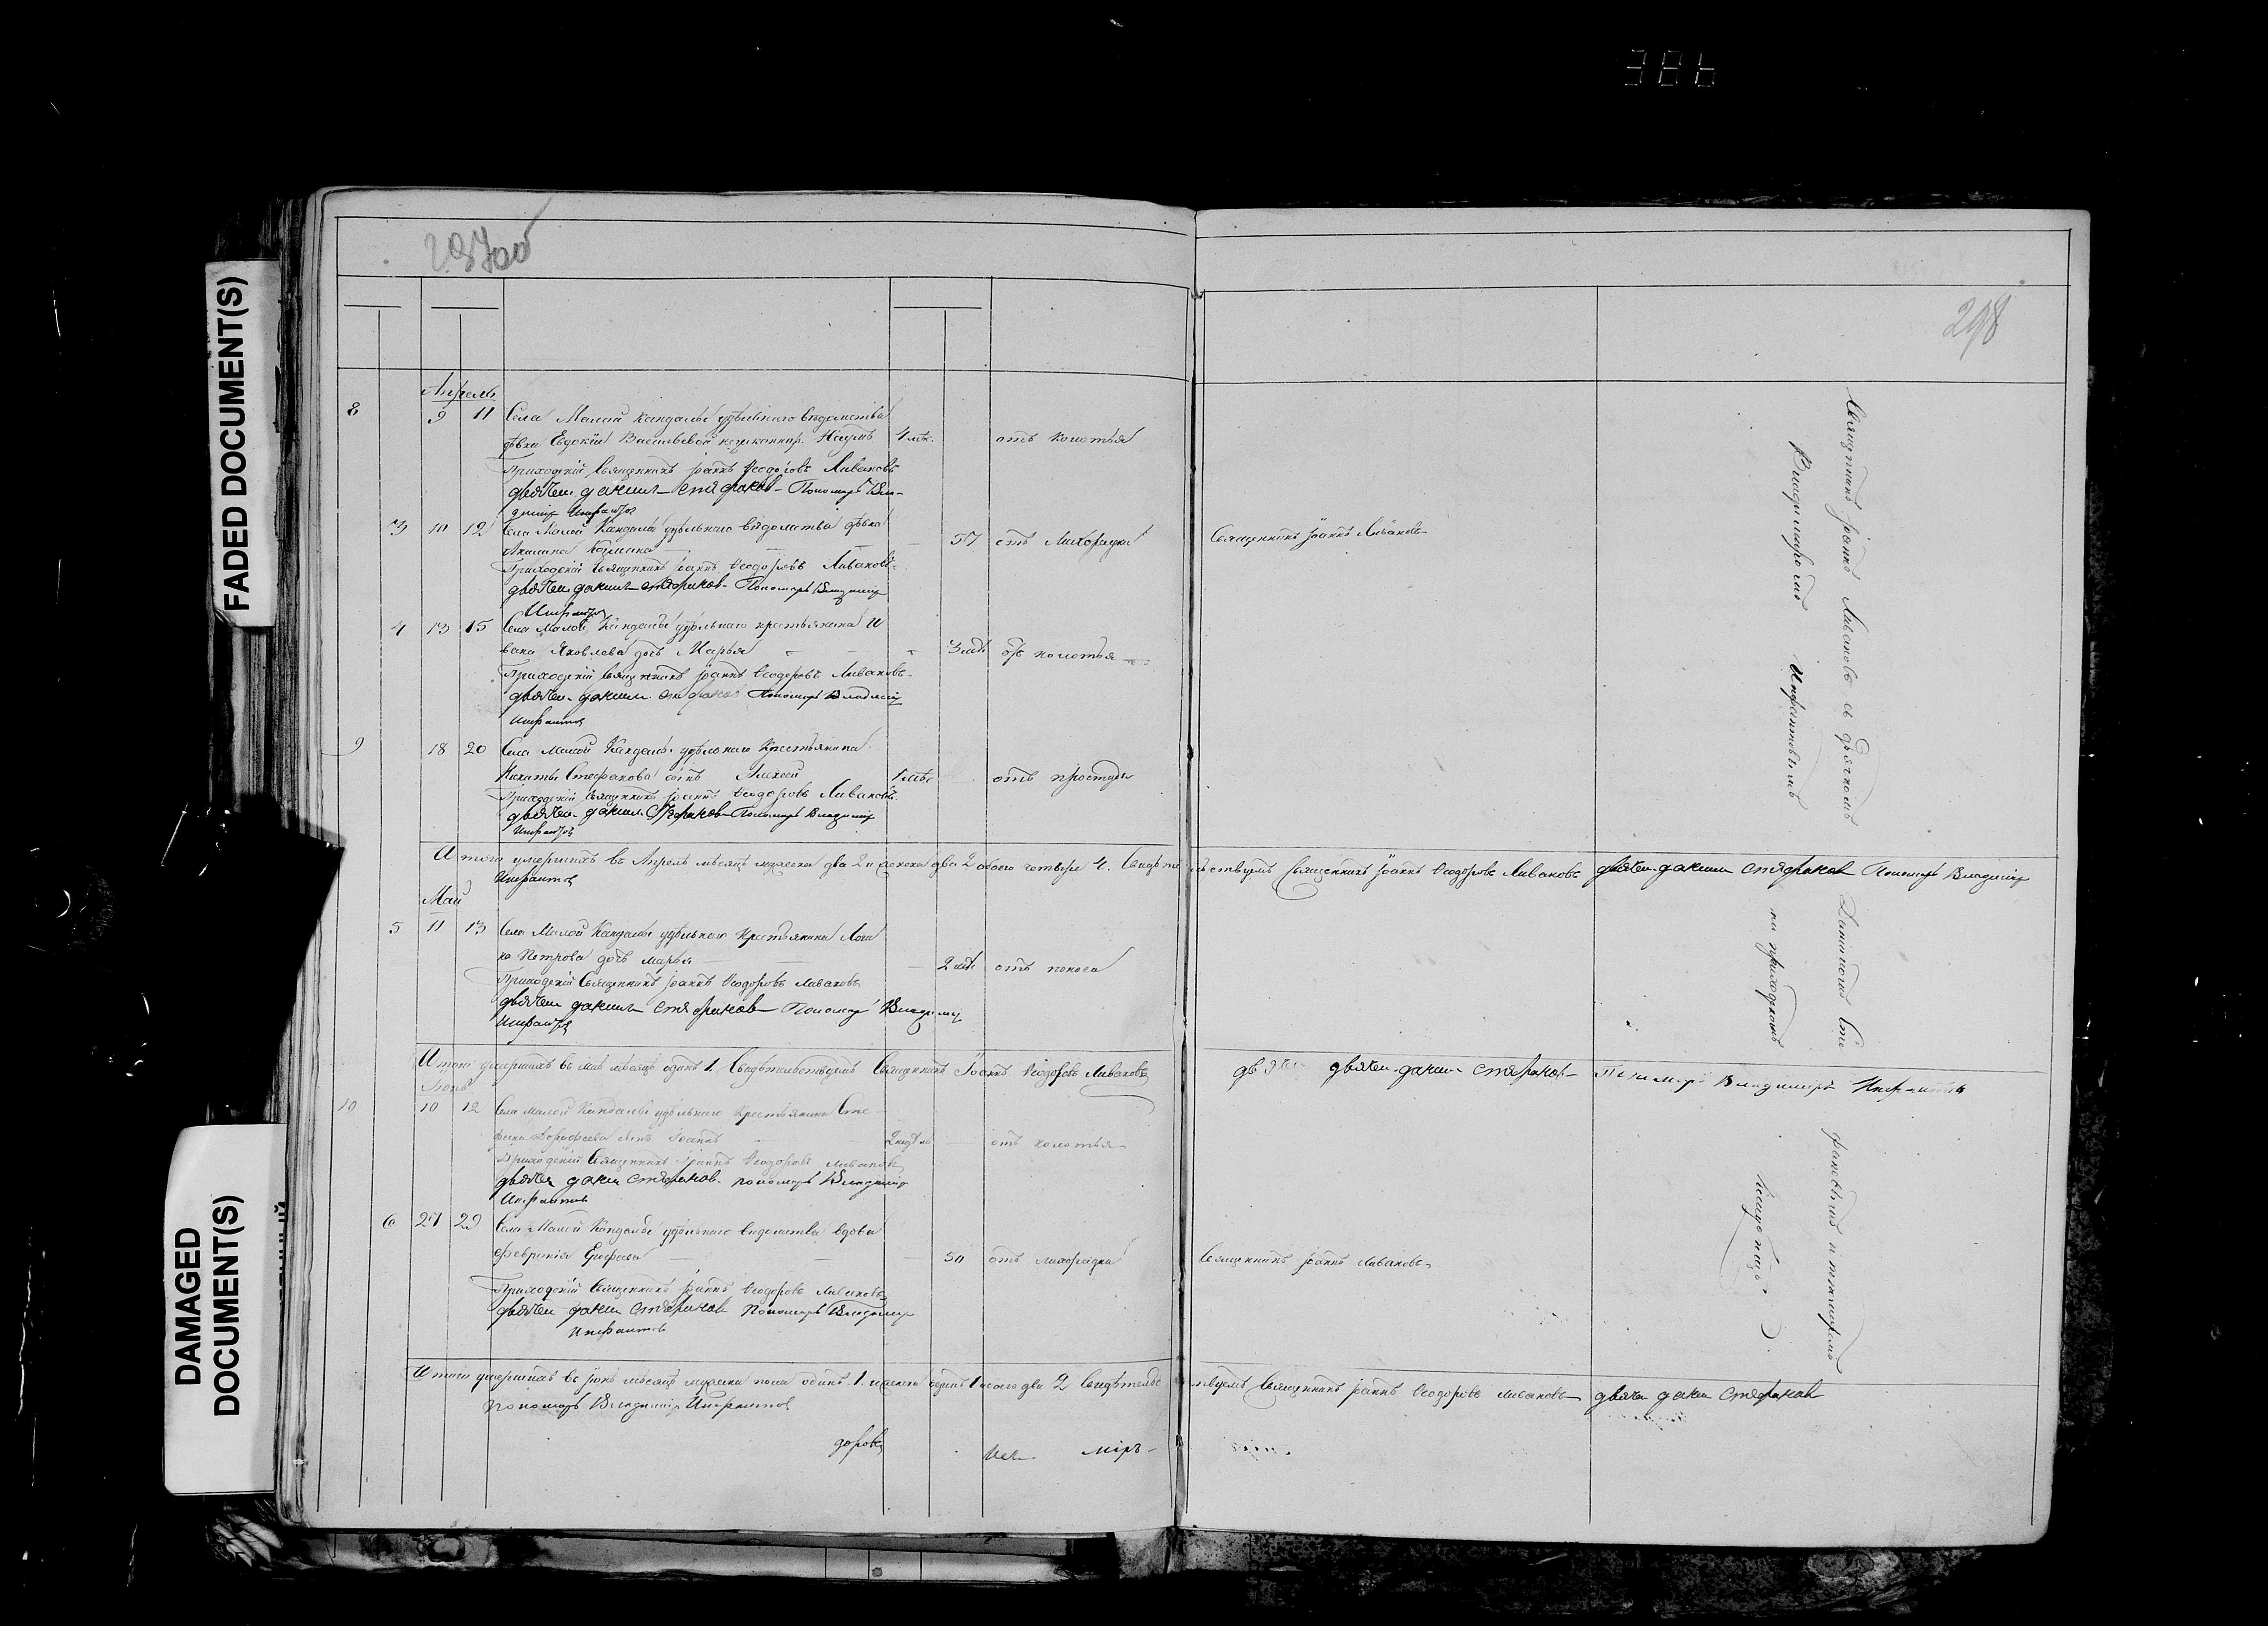 386
FADED DOCUMENT(S)
DAMAGED DOCUMENT(S)
297об
298
Апрель
8 9 11 Села Малой Кандалы удѣльнаго вѣдомства
дѣвки Евдокіи Васильевой Наумъ 4 мѣс. отъ колотья
Приходскій Священникъ Іоаннъ Ѳеодоровъ Ливановъ
дьячекъ данилъ стефановъ Пономарь Вла-
димир Инфантов
3 10 12 Села Малой Кандалы удѣльнаго вѣдомства дѣвка
Акилина 57 отъ Лихорадки Священникъ Іоаннъ Ливановъ
Приходскій Священникъ Іоаннъ Ѳеодоровъ Ливановъ
дьячекъ данилъ стефанов Пономарь Владимир
Инфантов
4 13 15 Села Малой Кандалы удѣльнаго крестьянина И
вана Яковлева дочь Марья 3 нед. отъ колотья
Приходскій Священникъ Іоаннъ Ѳеодоровъ Ливановъ
дьячек данил стефанов Пономарь Владимир
Инфантов
9 18 20 Села Малой Кандалы удѣльнаго Крестьянина
Никиты Стефанова сынъ Алексей 1 мѣс отъ простуды
Приходскій Священникъ Іоаннъ Ѳеодоровъ Ливановъ
дьячек данил Стефанов Пономарь Владимир
Инфантов
Итого умершихъ въ Апрелѣ мѣсяцѣ мужеска два 2 и женска два 2 обоего четверо 4. Свидѣтельствуемъ Священникъ Іоаннъ Ѳеодоровъ Ливановъ дьячек данил стефанов Пономарь Владимир
Инфантов
Май
5 11 13 Села Малой Кандалы удѣльнаго Крестьянина
Петрова дочь Марья 2 нед. отъ поноса
Приходскій Священникъ Іоаннъ Ѳеодоровъ Ливановъ
дьячек данил стефанов Пономар Владимир
Инфантов
Итого умершихъ въ маѣ мѣсяцѣ одинъ 1. Свидѣтельствуемъ Священникъ Іоаннъ Ѳеодоровъ Ливановъ дьячек данил стефанов Пономарь Владимиръ Инфантовъ
Іюнь
10 10 12 Села Малой Кандалы удѣльнаго Крестьянина Сте
фана Дорофеева сынъ Іоаннъ 2 недѣль отъ колотья
Приходскій Священникъ Іоаннъ Ѳеодоровъ Ливановъ
дьячек данил стефанов пономарь Владимир
Инфантов
6 27 29 Села Малой Кандалы удѣльнаго вѣдомства вдова
Февронія 50 отъ лихорадки Священникъ Іоаннъ Ливановъ
Приходскій Священникъ Іоаннъ Ѳеодоровъ Ливановъ
дьячек данил Стефанов Пономарь Владимир
Инфантов
Итого умершихъ въ Іюнѣ мѣсяцѣ мужеска пола одинъ 1. и женска одинъ 1 обоего два 2 Свидѣтельствуемъ Священникъ Іоаннъ Ѳеодоровъ Ливановъ дьячек данил Стефанов
пономарь Владимир Инфантов
доровъ міръ
Священникъ Іоаннъ Ливановъ съ дьячкомъ Даниломъ Сте фановымъ и пономаремъ
Владимиромъ Инфантовымъ на приходскомъ кладбищѣ